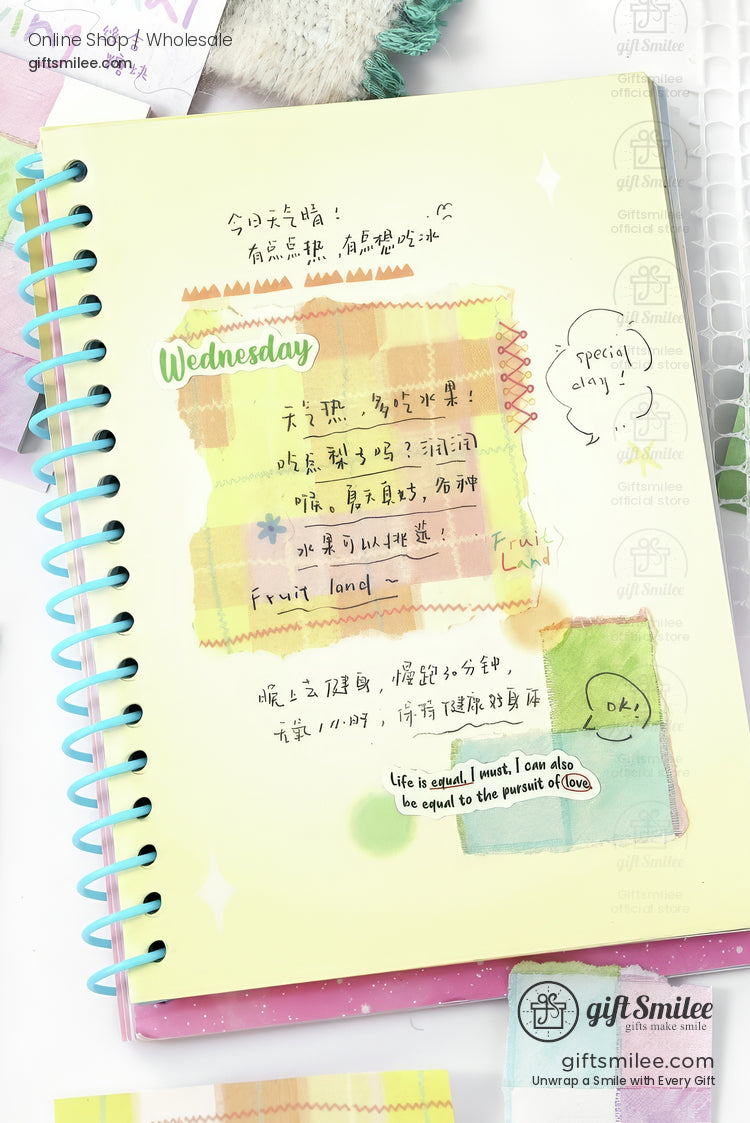 Online Shop | Wholesale
giftsmilee.com
gift Smilee
Giftsmilee
official store
gift Smilee
Giftsmilee
official store
今日天气晴!
有点点热,有点想吃冰
Wednesday
special
day!
天气热,多吃水果!
吃点梨子吗?润润
喉。夏天真好,各种
水果可以挑选!
Fruit land ~
Fruit
Land
gift Smilee
Giftsmilee
official store
gift Smilee
晚上去健身,慢跑30分钟,
无氧1小时,保持健康好身体
OK!
Life is equal, I must, I can also
be equal to the pursuit of love.
gift Smilee
Giftsmilee
official store
gift Smilee
gifts make smile
giftsmilee.com
Unwrap a Smile with Every Gift